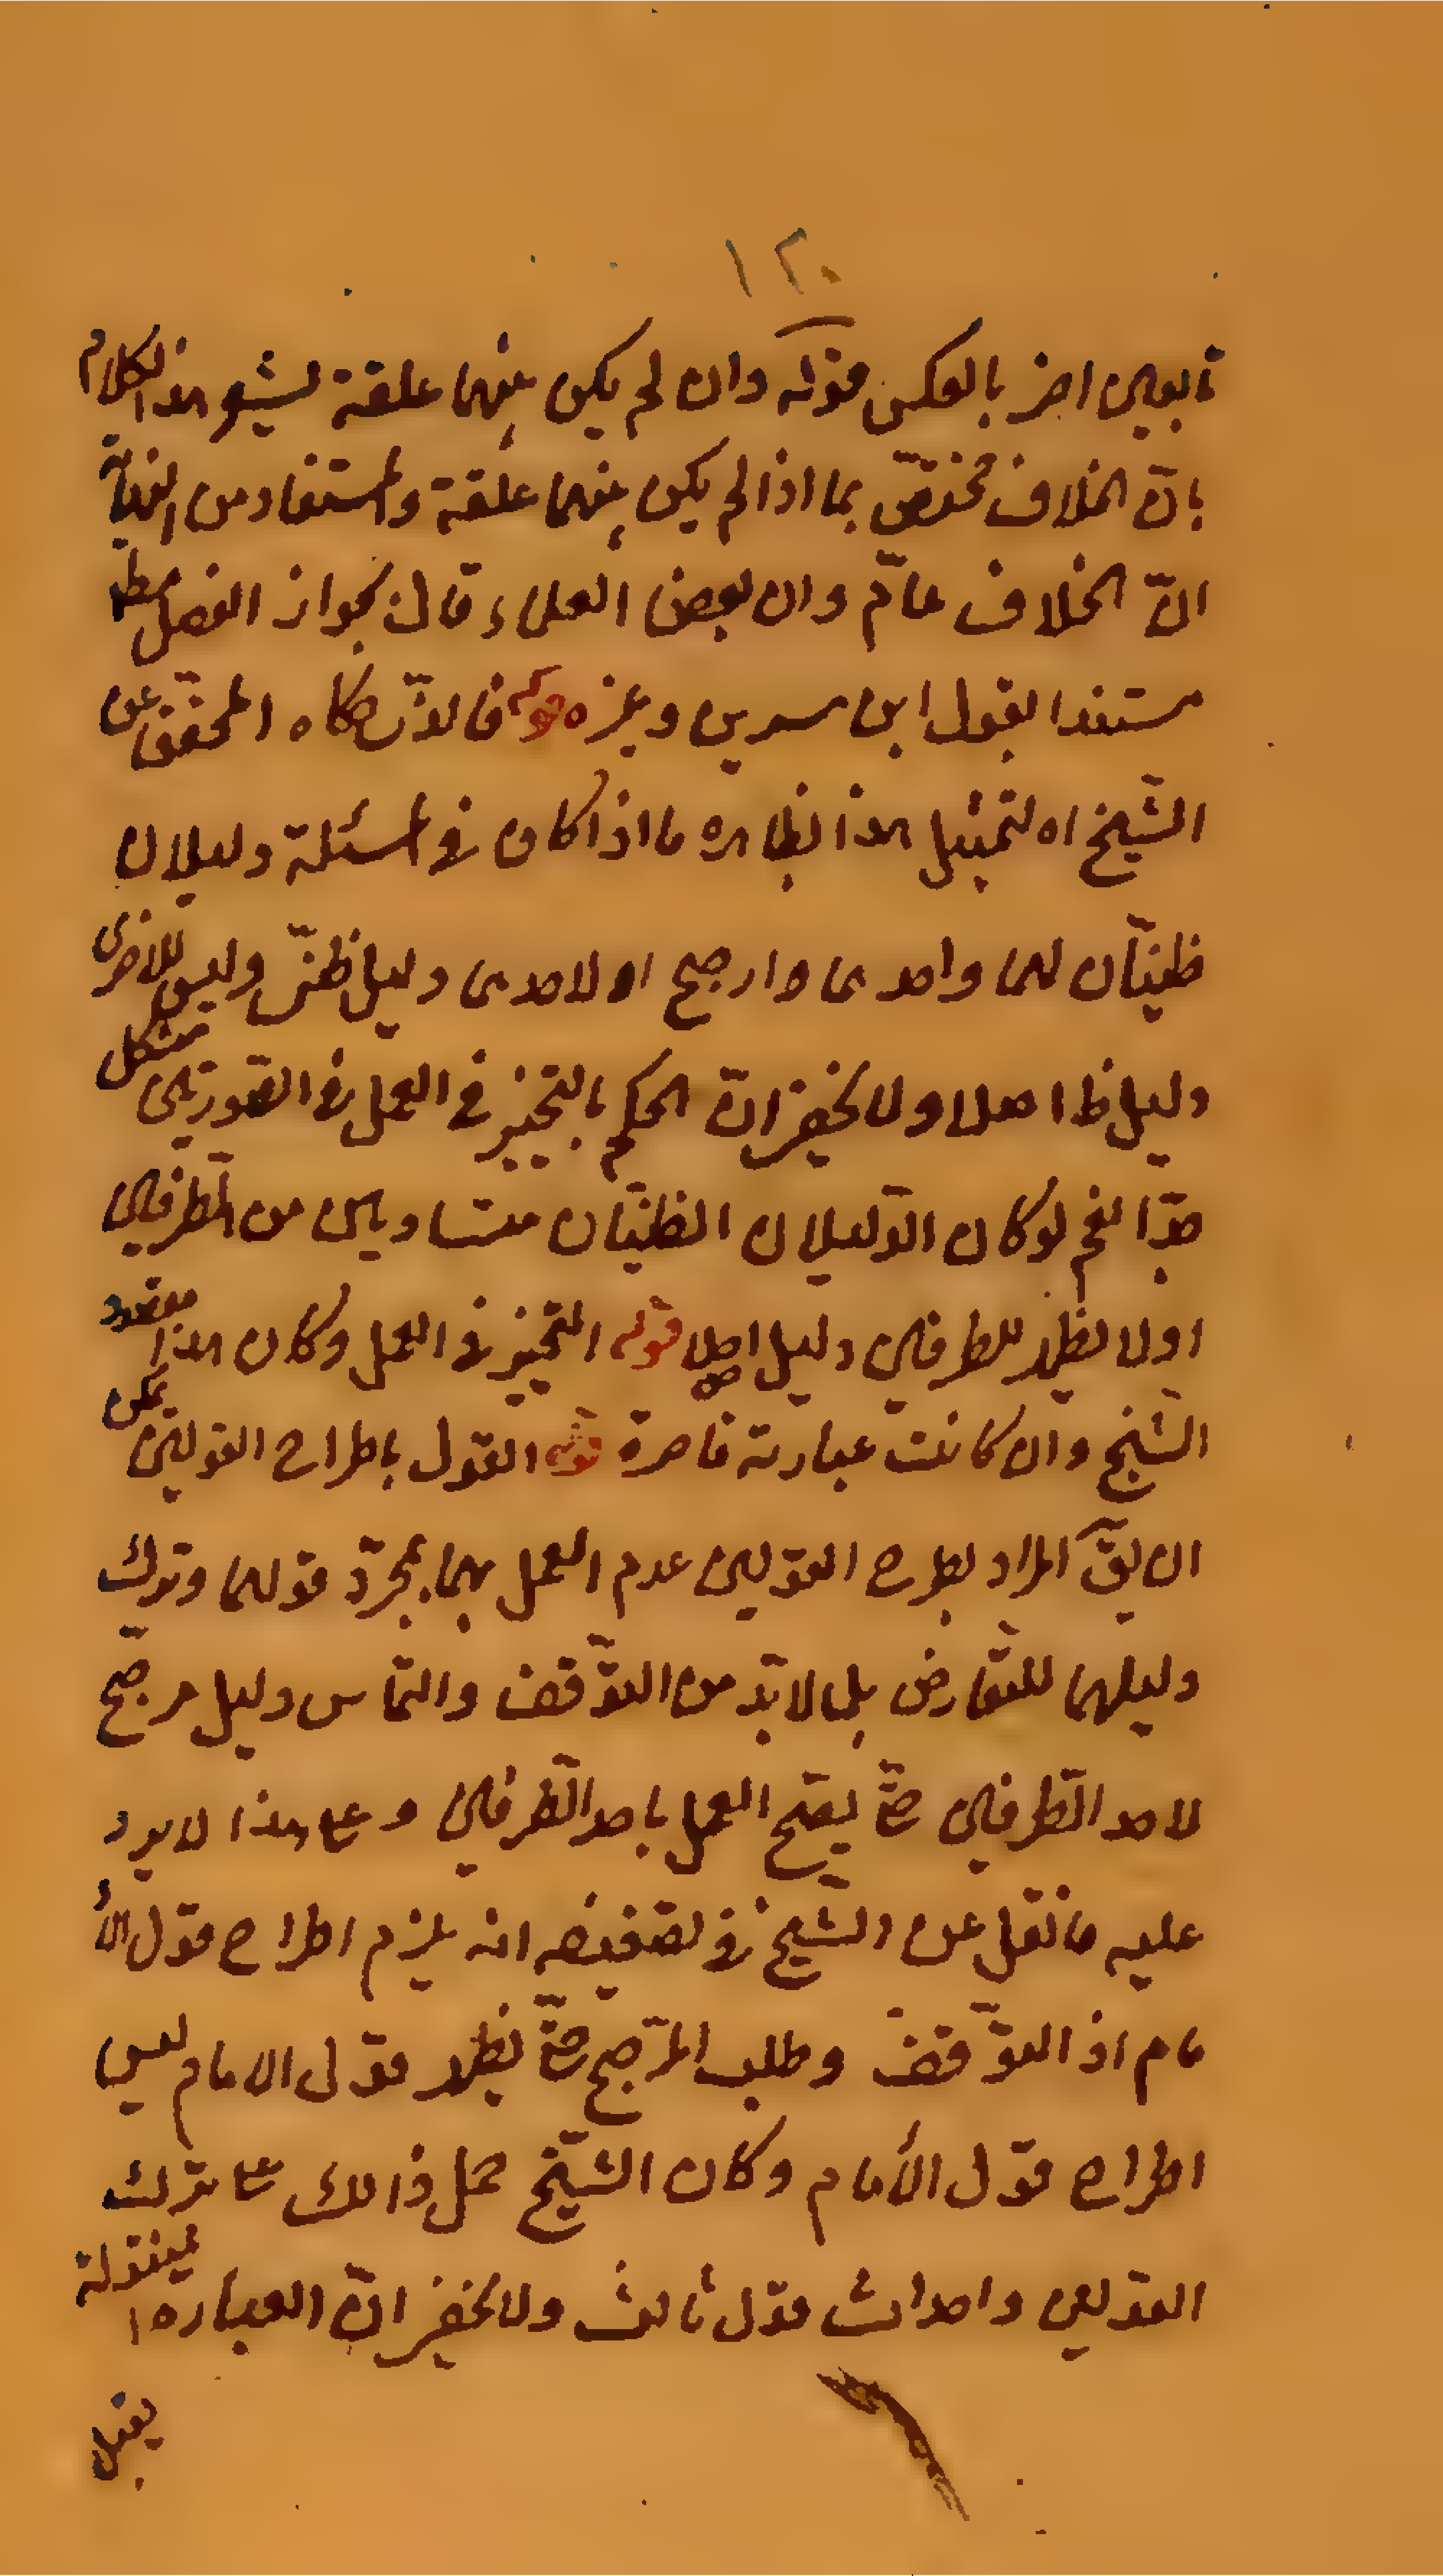 ١٢٠
تابعى اخر بالعكس قوله وان لم يكن بينهما علقة يشعر هذا الكلام
بانّ الخلاف مختصّ بما اذا لم يكن بينهما علقة والمستفاد من النهاية
انّ الخلاف عامّ وان بعض العلماء قال بجواز الفصل مطلقا
مستندا بقول ابن سيرين وغيره قوله فالذى حكاه المحقق عن
الشيخ اه لتمثيل هذا بظاهره ما اذا كان فى المسئلة دليلان
ظنيّان لهما واحدهما ارجح او لاحدهما دليل ظنّى وليس للاخرى
دليل ظ اصلا ولا يخفى انّ الحكم بالتخيير فى العمل فى الصّورتين مشكل
جدّا نعم لو كان الدّليلان الظنيّان متساويين من الطرفين
او لا يظهر للطرفين دليل اصلا قوله التخيير فى العمل وكان هذا مقصود
الشّيخ وان كانت عبارته قاصرة قوله القول باطراح القولين يمكن
ان يقّ المراد بطرح القولين عدم العمل بهما بمجرّد قولهما وترك
دليلهما للتعارض بل لا بّد من التوّقف والتماس دليل مرجّح
لاحد الطّرفين حتّى يصّح العمل باحد الطّرفين وعلى هذا لا يرد
عليه ما نقل عن الشّيخ فى تضعيفه انه يلزم اطراح قول الا
مام اذ التوّقف وطلب المرّجح حتّى يظهر قول الامام ليس
اطراح قول الأمام وكان الشّيخ حمل ذالك على ترك
القولين واحداث قول ثالث ولا يخفى انّ العباره المنقولة
يقبل